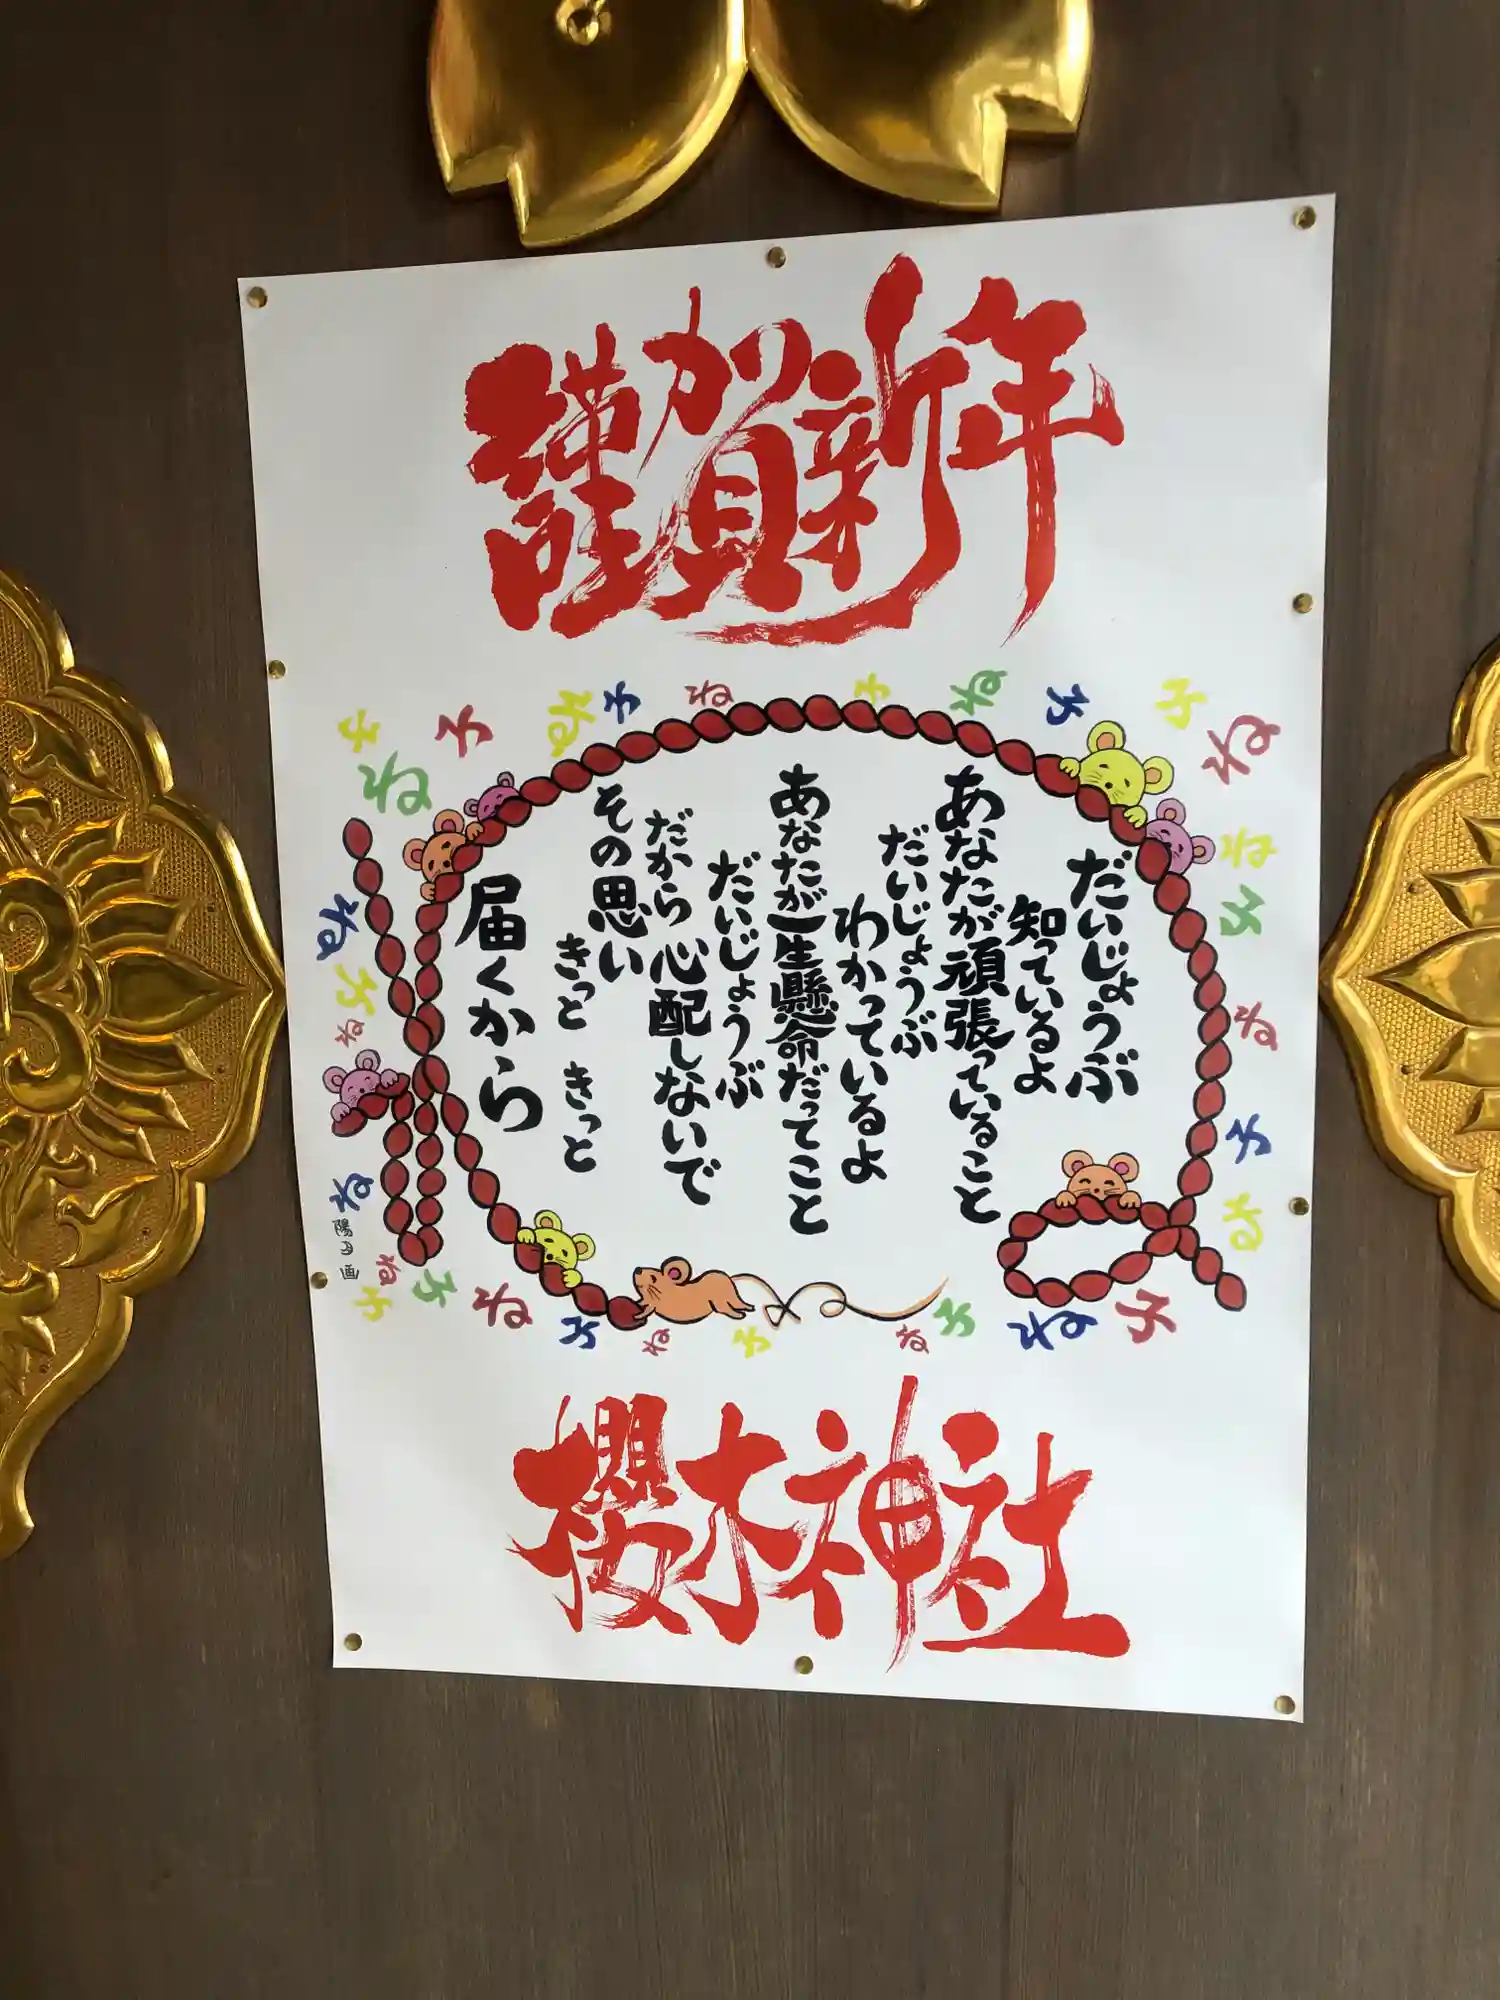 謹賀新年
だいじょうぶ
知っているよ
あなたが頑張っていること
だいじょうぶ
わかっているよ
あなたが一生懸命だってこと
だいじょうぶ
だから心配しないで
その思い
きっと きっと
届くから
櫻木神社
子
ね
子
ね
子
ね
子
ね
子
子
ね
ね
子
ね
ね
子
ね
ね
子
ね
子
ね
子
ね
子
ね
子
ね
子
ね
子